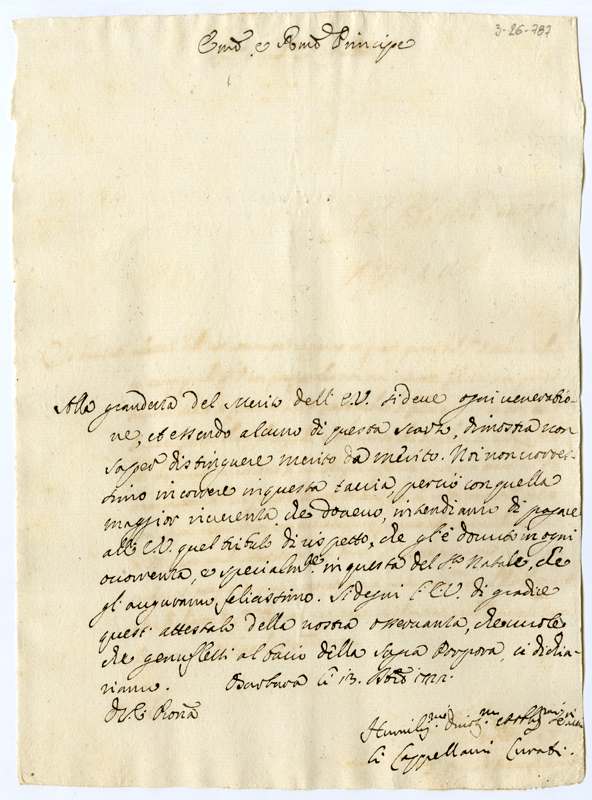 3-26-787
Emo. e Rmo. Principe
Alla grandezza del Merito dell' E.V. si deve ogni venerazio-
ne, et essendo alcuno di questa scarso, dimostra non
saper distinguere merito da merito. Noi non vorres-
simo incorrere in questa taccia, perciò con quella
maggior riverenza che dovemo, intendiamo di pagare
all' E.V. quel tributo di rispetto, che gl'è dovuto in ogni
occorrenza, e specialmte. in questa del Sto. Natale, che
gl'auguramo felicissimo. Si degni l'E.V. di gradire
questi attestati della nostra osservanza, che
che genuflessi al bacio della Sagra Porpora, ci dichia-
riamo. Barbara li 13.
Dell' E.V. Roma
Humilmi.
Li Cappellani Curati.